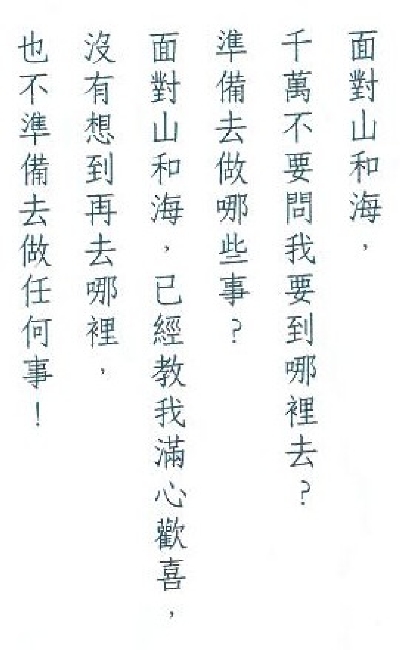 面對山和海，
千萬不要問我要到哪裡去？
準備去做哪些事？
面對山和海，已經教我滿心歡喜，
沒有想到再去哪裡，
也不準備去做任何事！